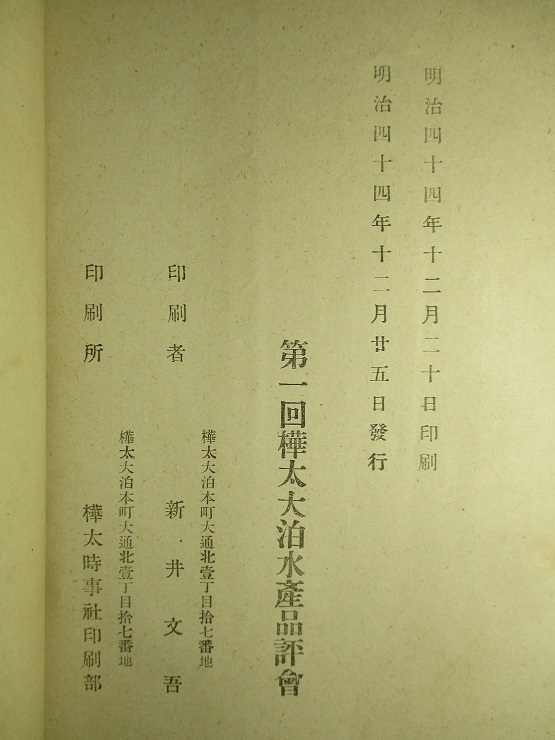 明治四十四年十二月二十日印刷
明治四十四年十二月廿五日發行
第一回樺太大泊水產品評會
樺太大泊本町大通北壹丁目拾七番地
印刷者 新井文吾
樺太大泊本町大通北壹丁目拾七番地
印刷所 樺太時事社印刷部